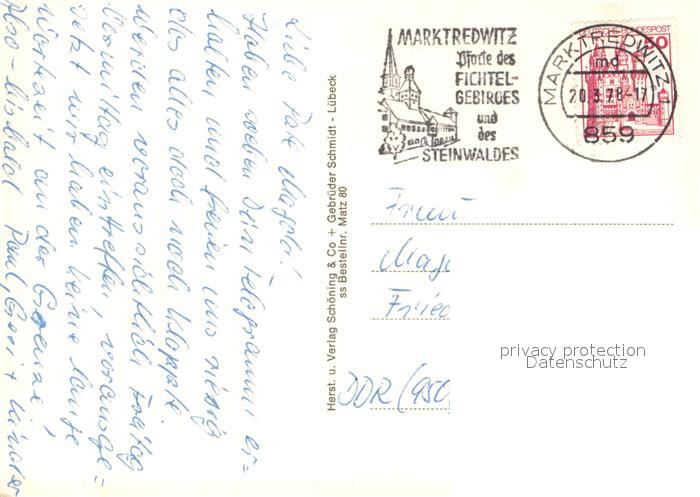 MARKTREDWITZ
Pforte des
FICHTEL-
GEBIRGES
und
des
STEINWALDES
DEUTSCHE BUNDESPOST
50
MARKTREDWITZ 1
md
20.3.78-17
859
Liebe Magda!
Haben soeben Dein Telegramm er=
halten und freuen uns riesig
das alles doch noch klappte
Werden voraussichtlich Freitag
Vormittag eintreffen, vorausge=
setzt wir haben keine lange
Wartezeit an der Grenze!
Also - bis bald Paul, Gerri + Kinder
Herst. u. Verlag Schöning & Co + Gebrüder Schmidt - Lübeck
ss Bestellnr. Matz 80
Frau
Mag
Fried
DDR (950
privacy protection
Datenschutz